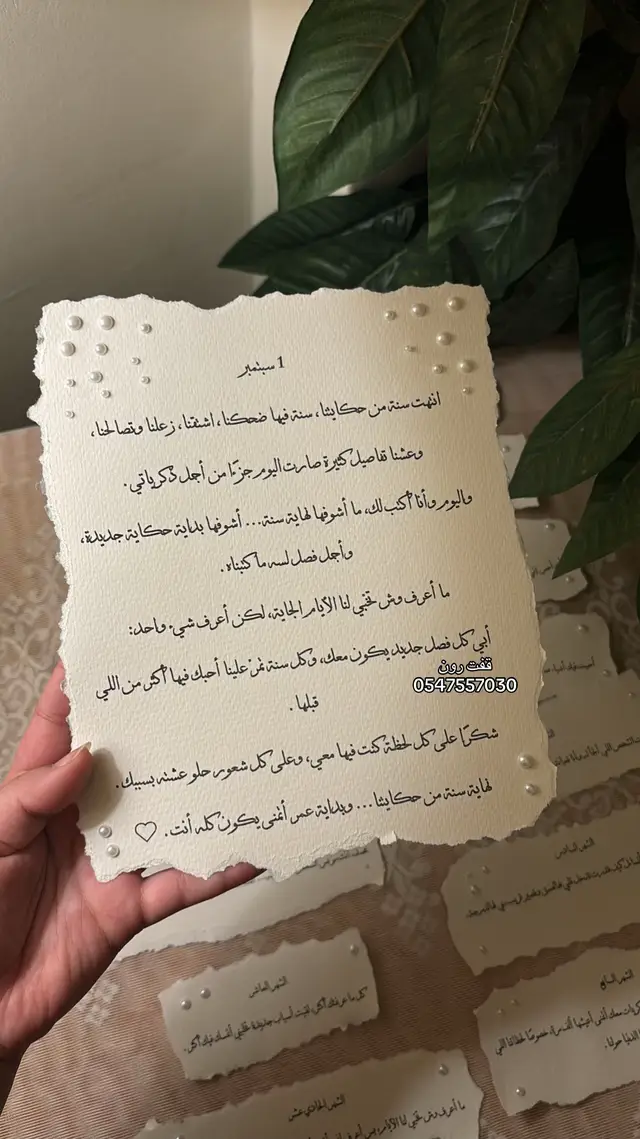 1 سبتمبر
انتهت سنة من حكايتنا، سنة فيها ضحكنا، اشتقنا، زعلنا وتصالحنا،
وعشنا تفاصيل كثيرة صارت اليوم جزءًا من أجمل ذكرياتي.
واليوم وأنا أكتب لك، ما أشوفها نهاية سنة... أشوفها بداية حكاية جديدة،
وأجمل فصل لسه ما كتبناه.
ما أعرف وش تخبي لنا الأيام الجاية، لكن أعرف شيء واحد:
أبي كل فصل جديد يكون معك، وكل سنة تمر علينا أحبك فيها أكثر من اللي
قبلها.
قفت رون
0547557030
شكرًا على كل لحظة كنت فيها معي، وعلى كل شعور حلو عشته بسببك.
نهاية سنة من حكايتنا... وبداية عمر أتمنى يكون كله أنت. ♡
الشهر السادس
الشهر السابع
الشهر العاشر
كل ما عرفتك أكثر، لقيت أسباب جديدة تخليني أتمسك فيك أكثر.
الشهر الحادي عشر
ما أعرف وش تخبي لنا الأيام،